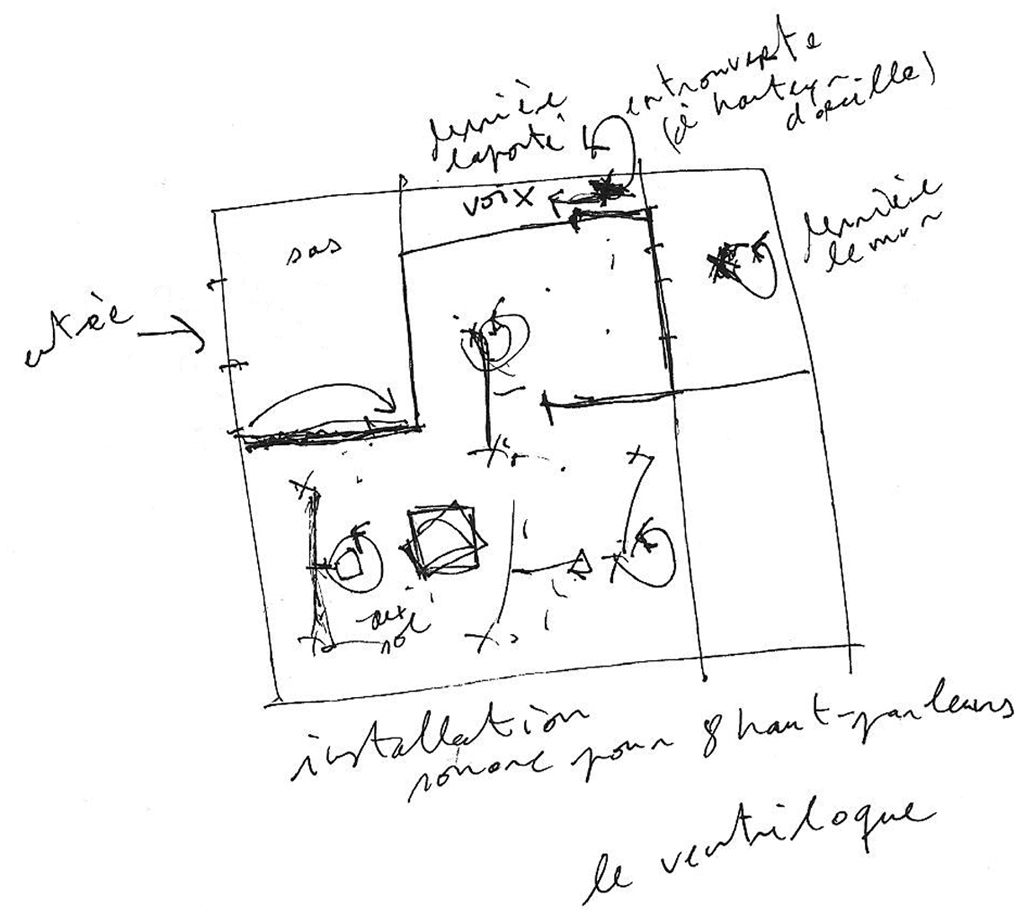 derrière
la porte
entrouverte
(à hauteur
d'oreille)
voix
sas
derrière
le mur
entrée
au
sol
installation
sonore pour 8 haut-parleurs
le ventriloque